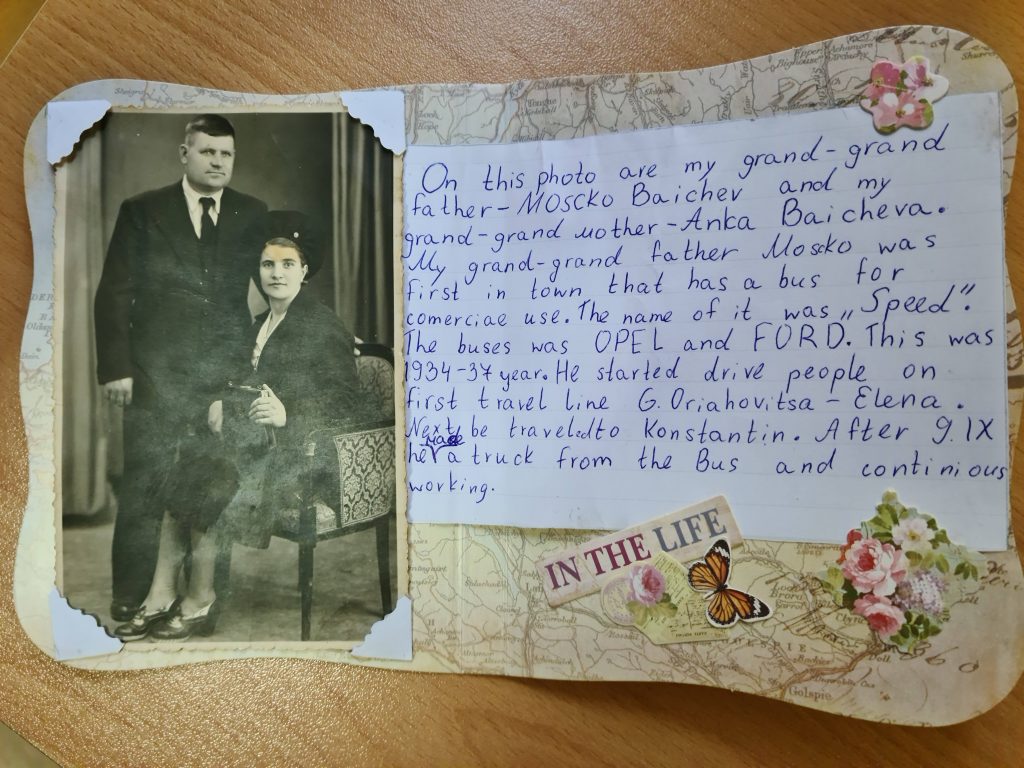 On this photo are my grand-grand
father-MOSCKO Baichev and my
grand-grand mother-Anka Baicheva.
My grand-grand father Moscko was
first in town that has a bus for
comerciae use. The name of it was „Speed".
The buses was OPEL and FORD. This was
1934-37 year. He started drive people on
first travel line G. Oriahovitsa - Elena.
Next be traveled to Konstantin. After 9.IX
he made a truck from the Bus and continious
working.
IN THE LIFE
Golspie